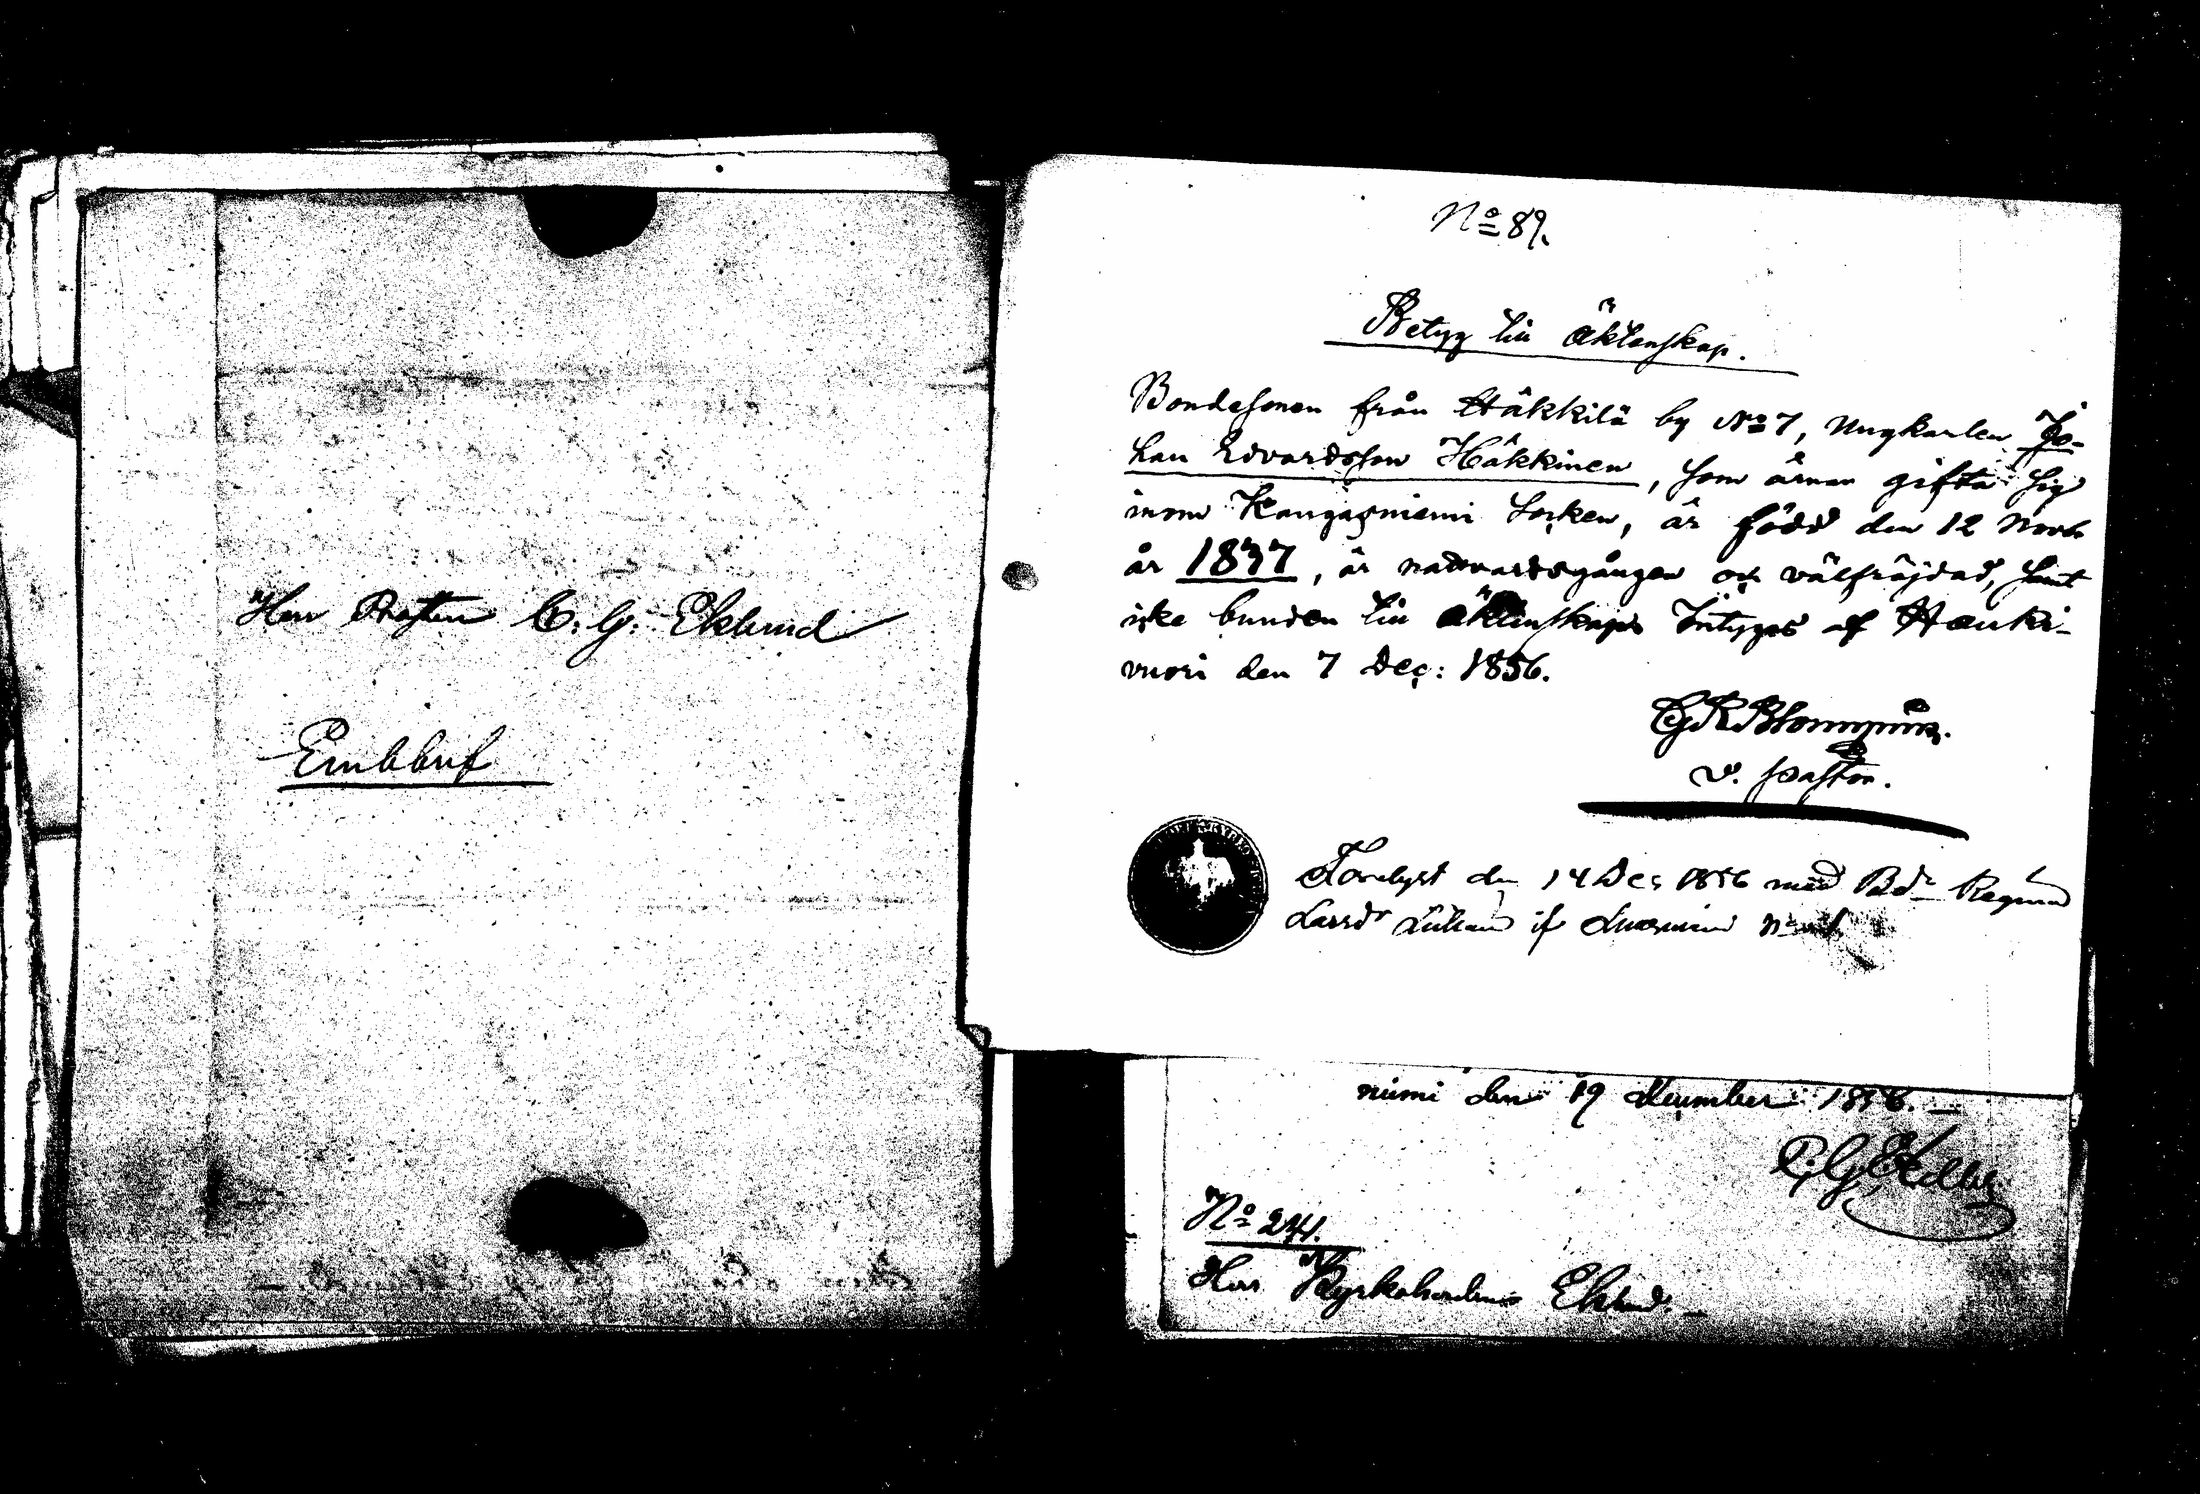 Herr Pastern C. G. Eklund
Embbref
No 89.
Betyg till Äktenskap.
Bondesonen från Häkkilä by No 7, Ungkarlen Jo-
han Edvardsson Häkkinen, som ärnar gifta sig
inom Kangasniemi Socken, är född den 12 Novb
år 1837, är nattvardsgången och välfräjdad, samt
icke bunden till äktenskap, Intygas af Hauki-
vuori den 7 Dec: 1856.
v. pastor.
Förelyst den 14 Dec 1856 med Bdr Regina
Larsdr if No 1
niemi den 19 December 1856.
No 241.
Herr Kyrkoherden Eklund.